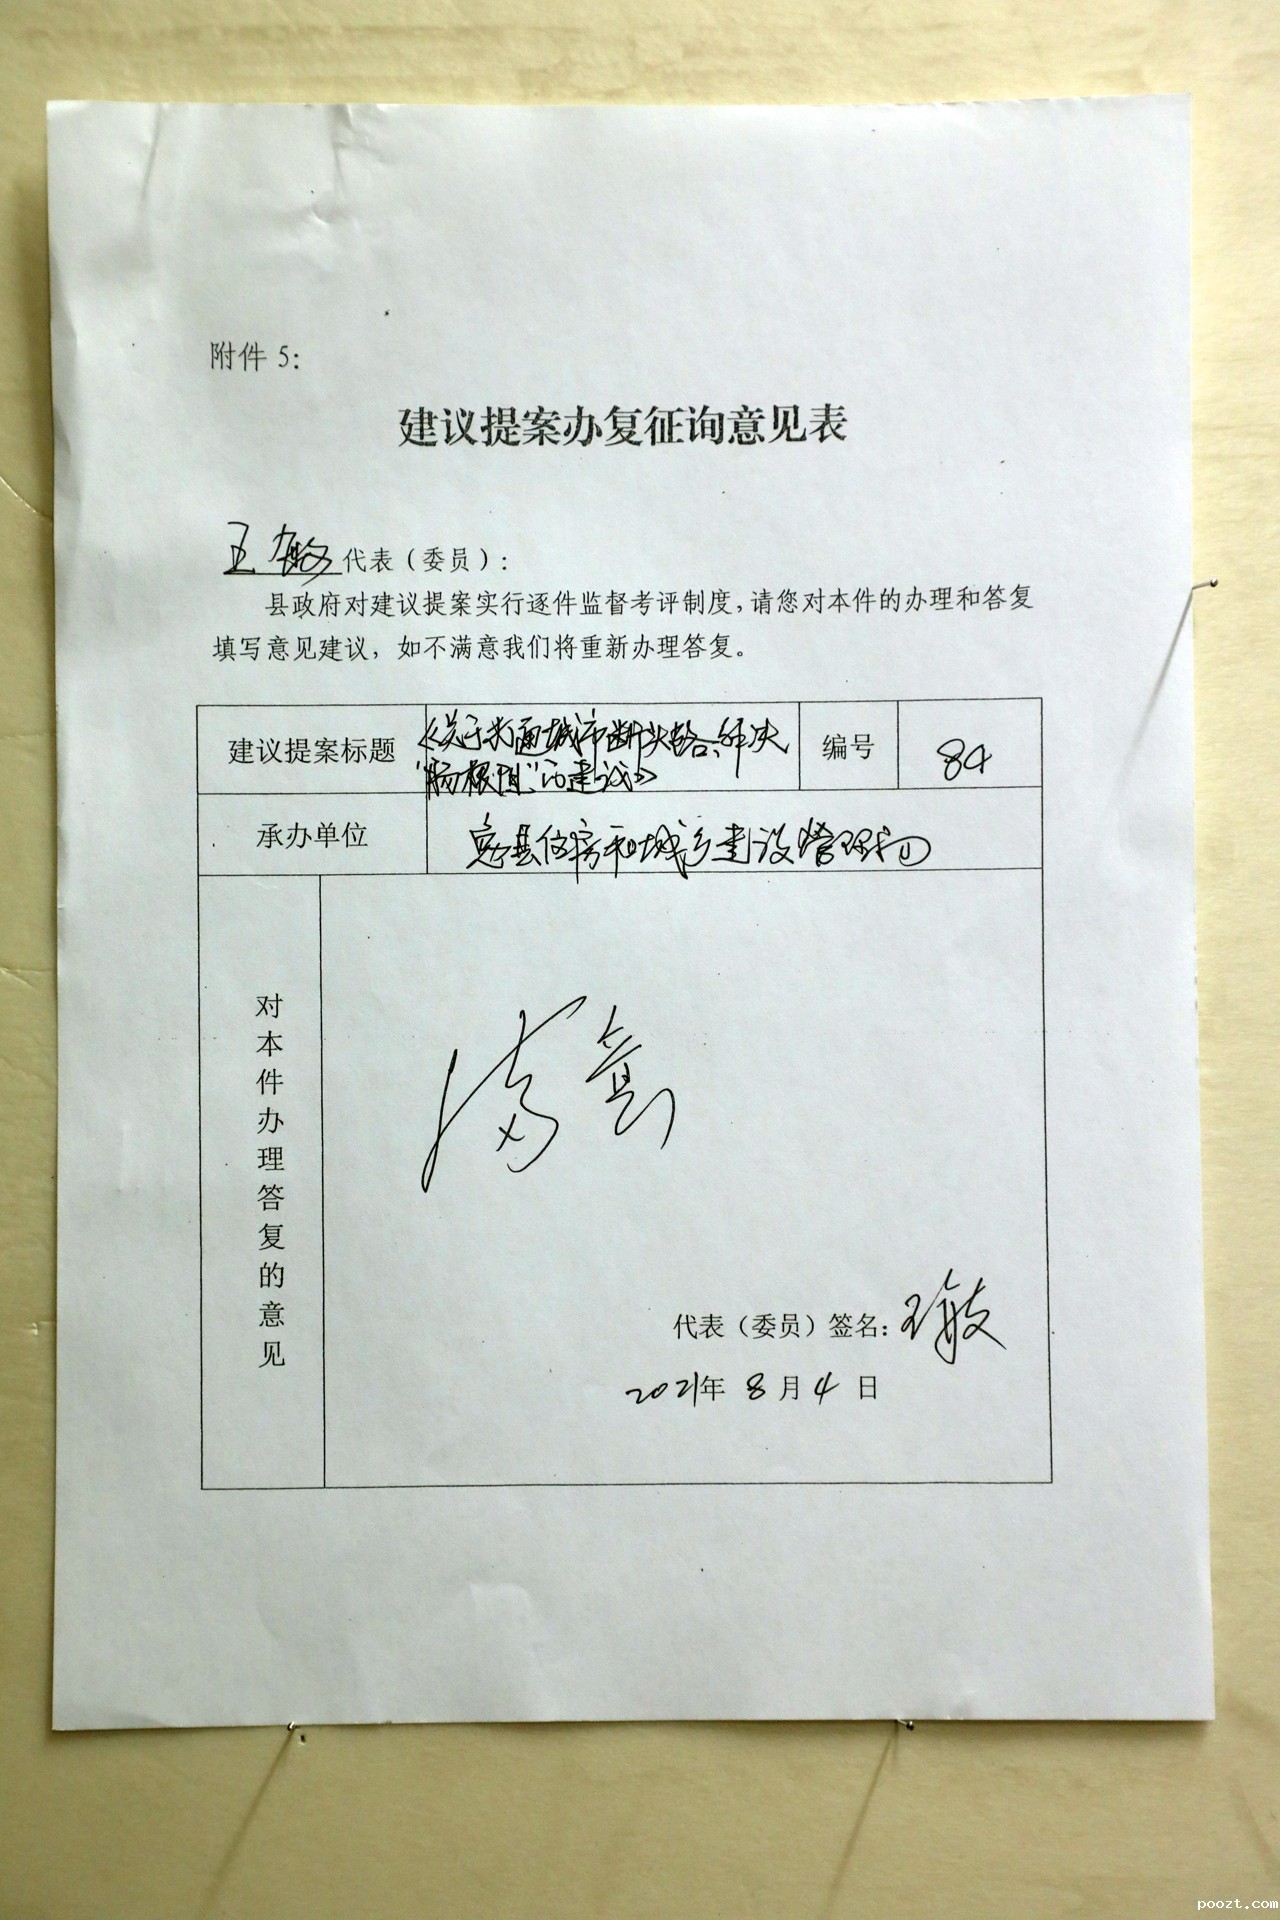 附件 5：
建议提案办复征询意见表
王敏代表（委员）：
县政府对建议提案实行逐件监督考评制度，请您对本件的办理和答复
填写意见建议，如不满意我们将重新办理答复。
建议提案标题
《关于打通城市断头路、解决
"肠梗阻"的建议》
编号
84
承办单位
县住房和城乡建设管理局
对本件办理答复的意见
满意
代表（委员）签名：王敏
2021年 8 月 4 日
poozt.com